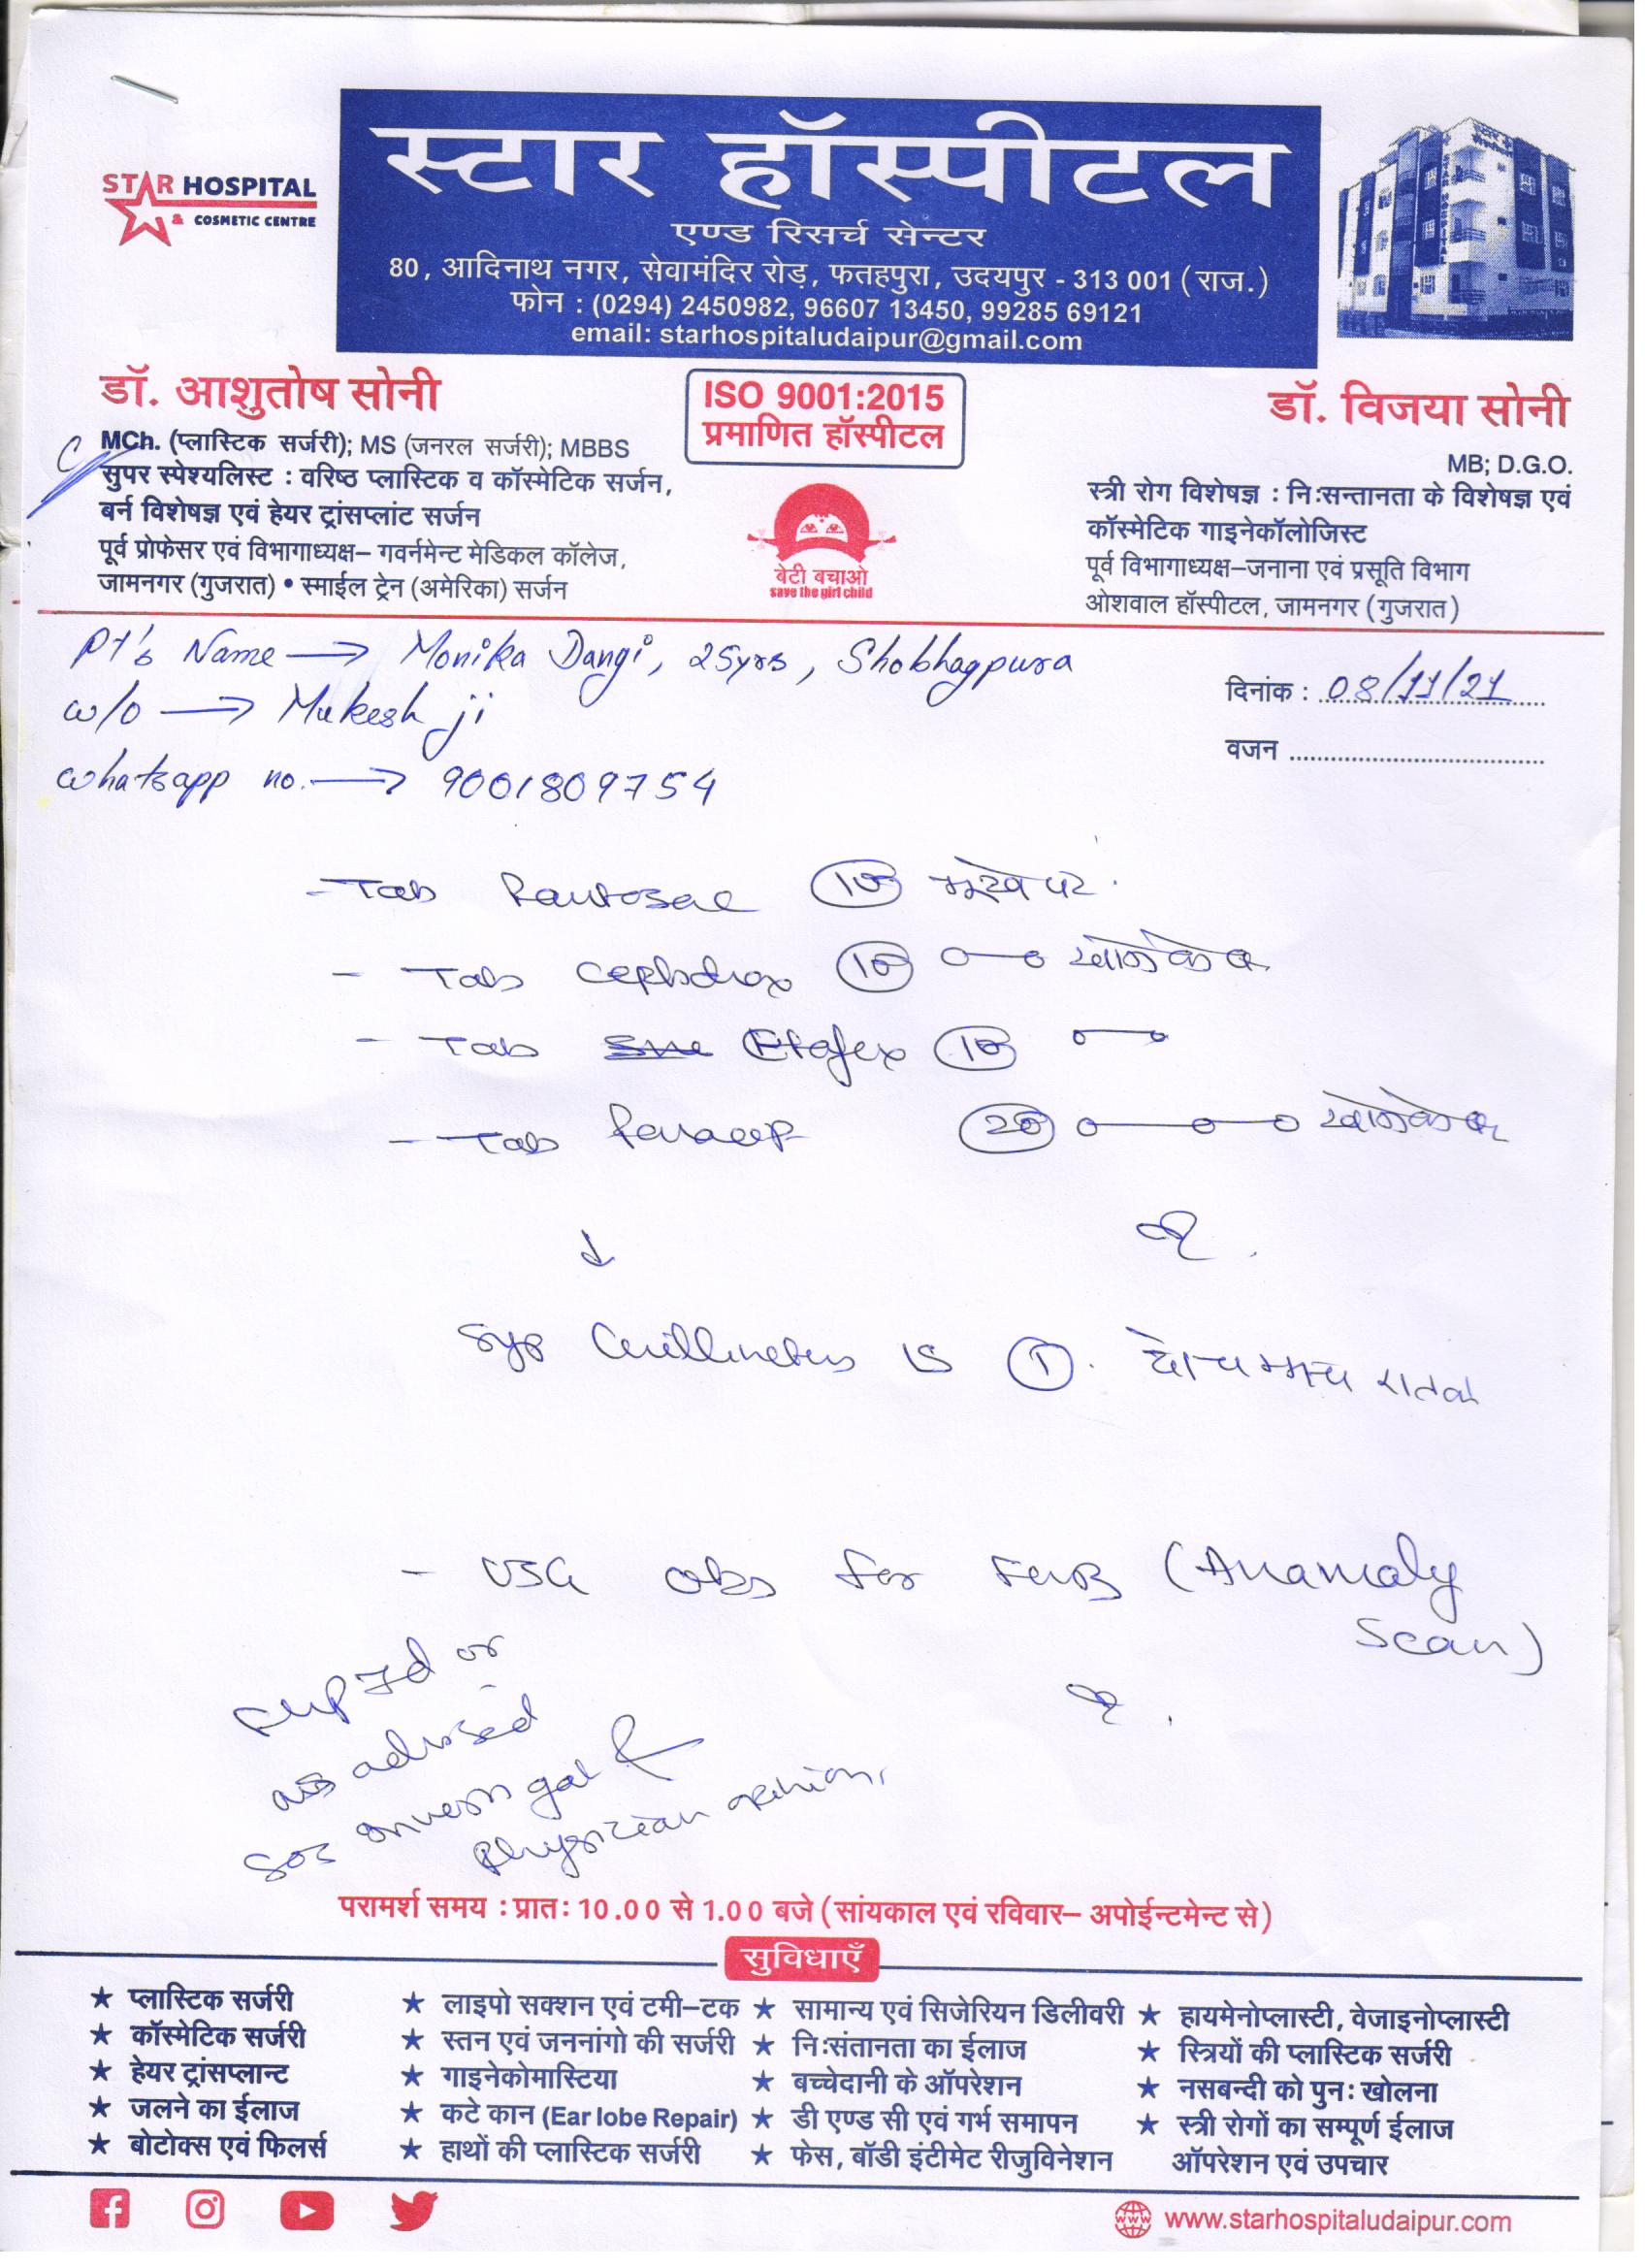 स्टार हॉस्पीटल
STAR HOSPITAL
& COSMETIC CENTRE
एण्ड रिसर्च सेन्टर
80, आदिनाथ नगर, सेवामंदिर रोड़, फतहपुरा, उदयपुर - 313 001 (राज.)
फोन : (0294) 2450982, 96607 13450, 99285 69121
email: starhospitaludaipur@gmail.com
डॉ. आशुतोष सोनी
MCh. (प्लास्टिक सर्जरी); MS (जनरल सर्जरी); MBBS
सुपर स्पेश्यलिस्ट : वरिष्ठ प्लास्टिक व कॉस्मेटिक सर्जन,
बर्न विशेषज्ञ एवं हेयर ट्रांसप्लांट सर्जन
पूर्व प्रोफेसर एवं विभागाध्यक्ष– गवर्नमेन्ट मेडिकल कॉलेज,
जामनगर (गुजरात) • स्माईल ट्रेन (अमेरिका) सर्जन
ISO 9001:2015
प्रमाणित हॉस्पीटल
बेटी बचाओ
save the girl child
डॉ. विजया सोनी
MB; D.G.O.
स्त्री रोग विशेषज्ञ : निःसन्तानता के विशेषज्ञ एवं
कॉस्मेटिक गाइनेकॉलोजिस्ट
पूर्व विभागाध्यक्ष–जनाना एवं प्रसूति विभाग
ओशवाल हॉस्पीटल, जामनगर (गुजरात)
Pt's Name → Monika Dangi, 25yrs, Shobhagpura
दिनांक : 08/11/21
w/o → Mukesh ji
वजन
Whatsapp no. → 9001809754
- Tab 10 भूखे पेट
- Tab Cephdrox 10
- Tab Etofex 10
- Tab 20
Syp 1
- USG Obs for FWB (Anamaly
Scan)
7d or
as advised
SOS
Physician opinion
परामर्श समय : प्रातः 10.00 से 1.00 बजे (सांयकाल एवं रविवार– अपोईन्टमेन्ट से)
सुविधाएँ
★ प्लास्टिक सर्जरी ★ लाइपो सक्शन एवं टमी–टक ★ सामान्य एवं सिजेरियन डिलीवरी ★ हायमेनोप्लास्टी, वेजाइनोप्लास्टी
★ कॉस्मेटिक सर्जरी ★ स्तन एवं जननांगो की सर्जरी ★ निःसंतानता का ईलाज ★ स्त्रियों की प्लास्टिक सर्जरी
★ हेयर ट्रांसप्लान्ट ★ गाइनेकोमास्टिया ★ बच्चेदानी के ऑपरेशन ★ नसबन्दी को पुनः खोलना
★ जलने का ईलाज ★ कटे कान (Ear lobe Repair) ★ डी एण्ड सी एवं गर्भ समापन ★ स्त्री रोगों का सम्पूर्ण ईलाज
★ बोटोक्स एवं फिलर्स ★ हाथों की प्लास्टिक सर्जरी ★ फेस, बॉडी इंटीमेट रीजुविनेशन ऑपरेशन एवं उपचार
www.starhospitaludaipur.com